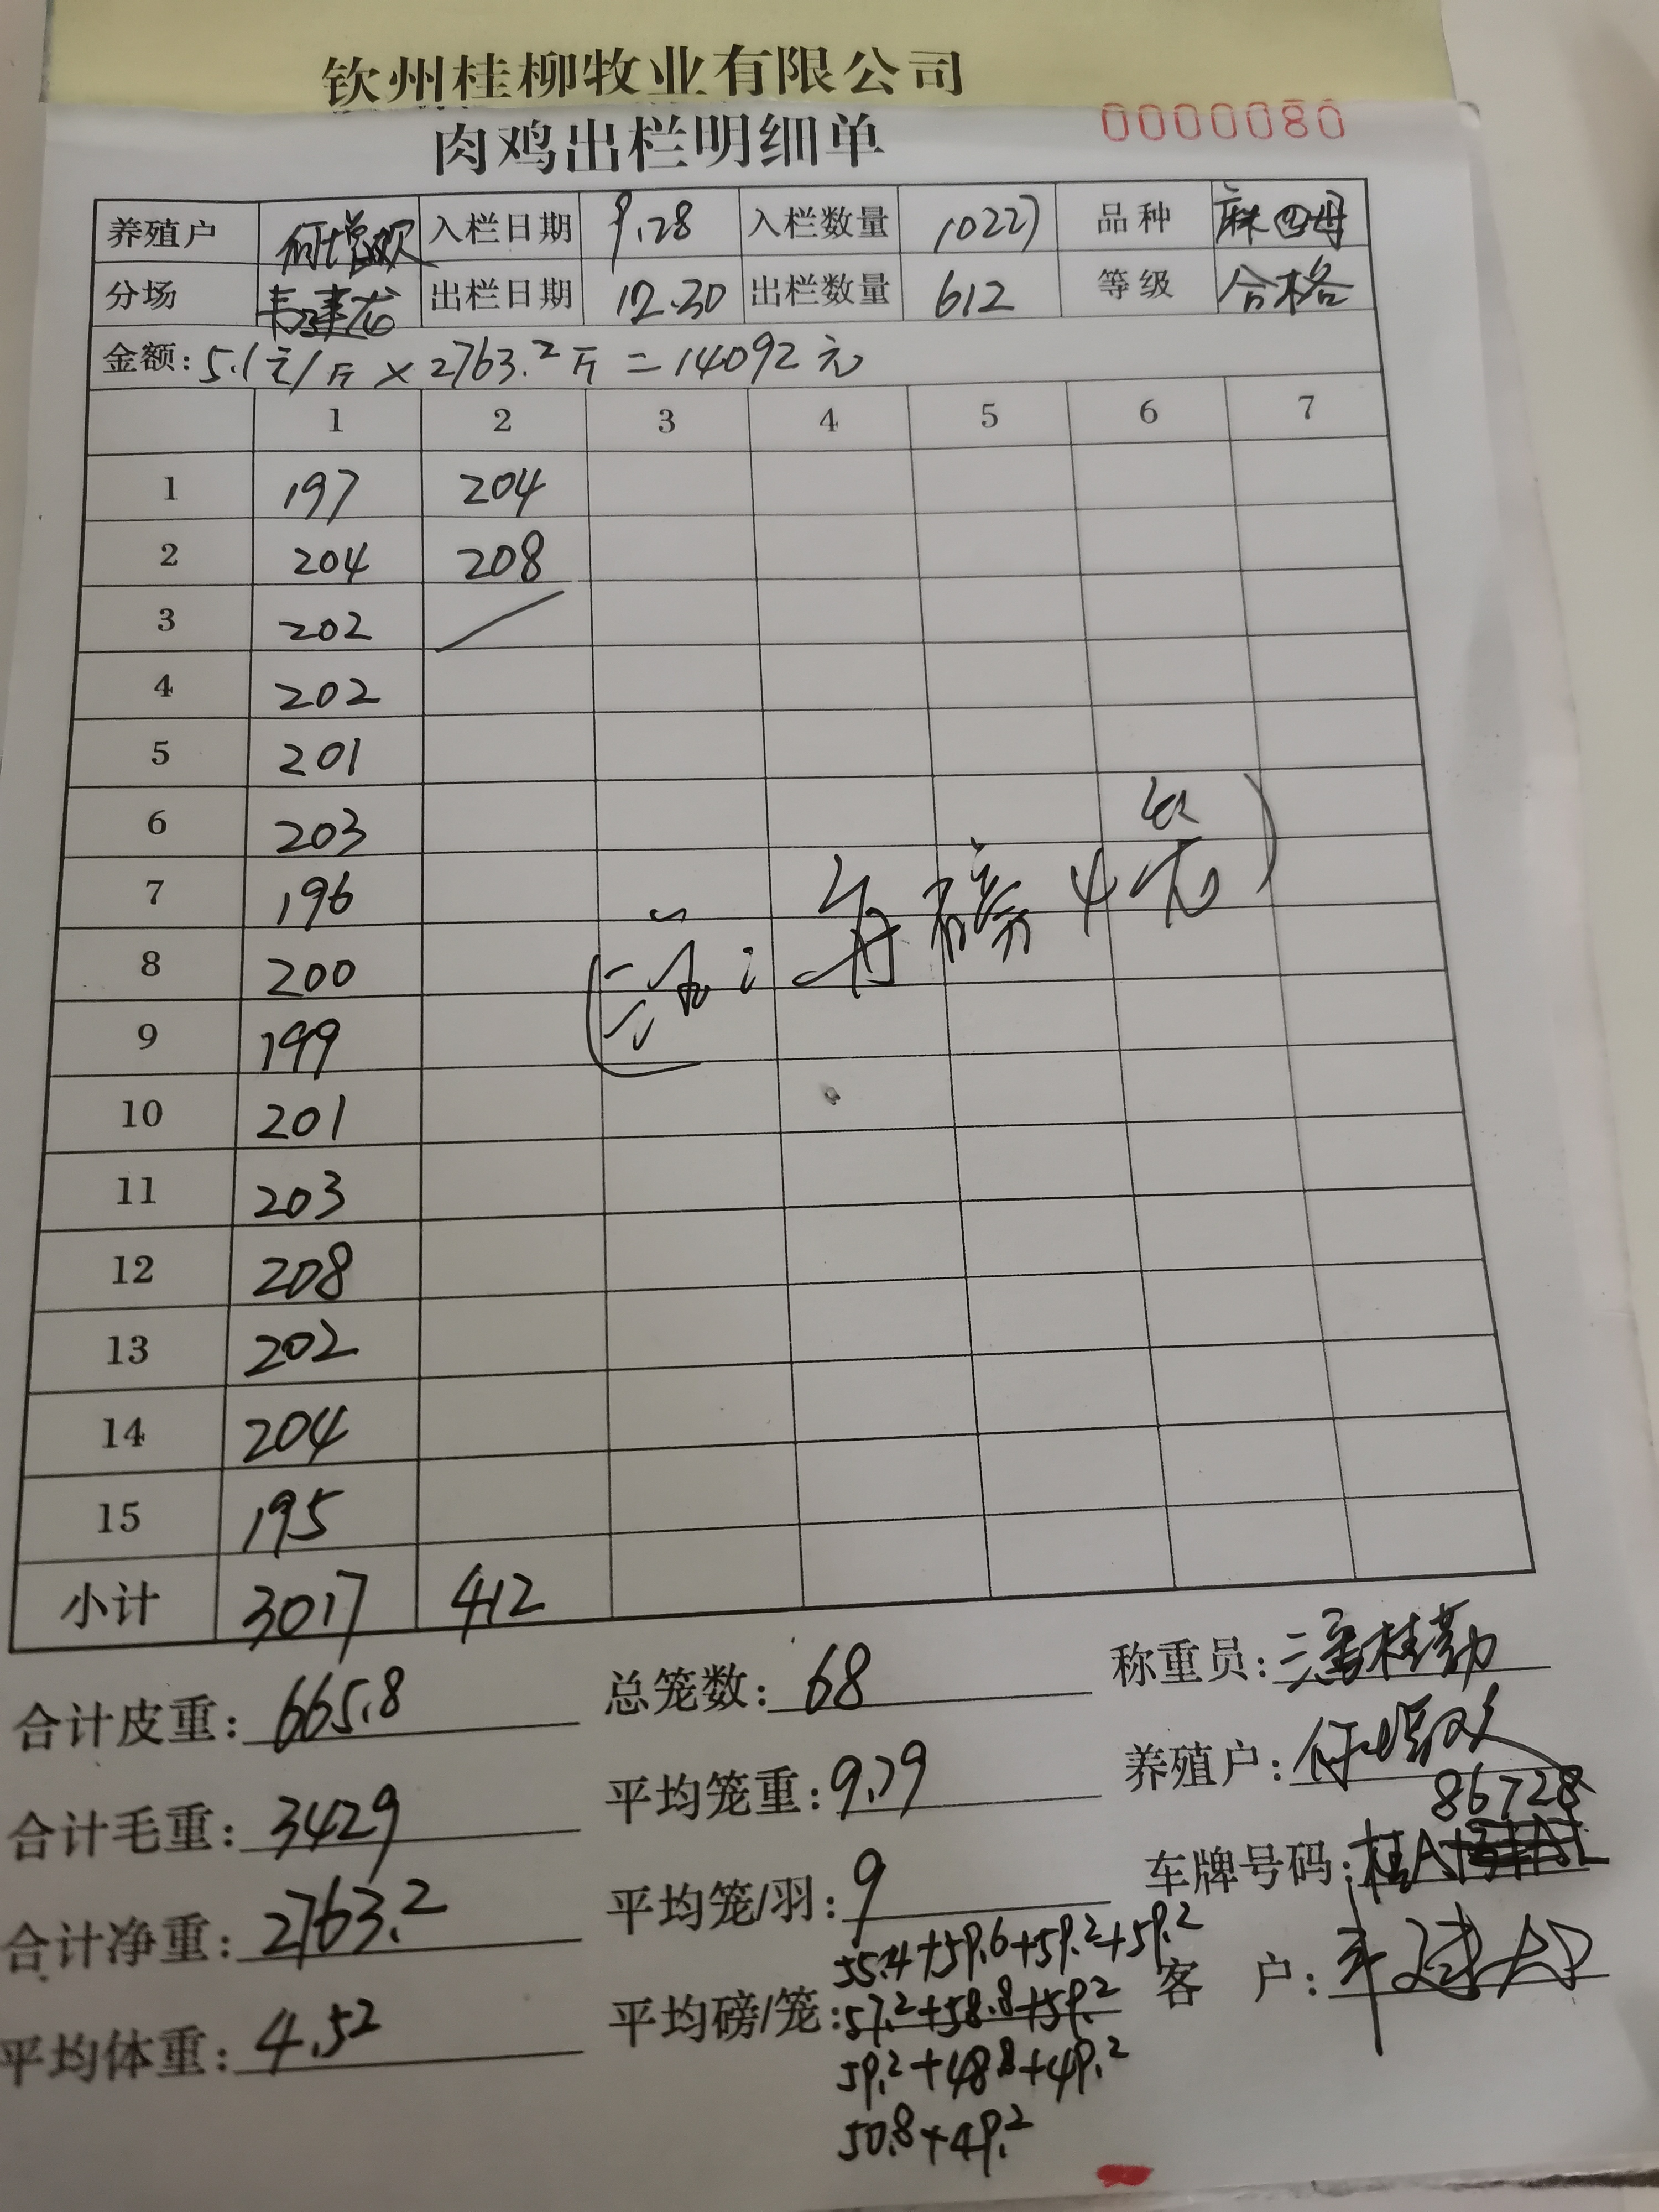 钦州桂柳牧业有限公司
肉鸡出栏明细单 0000080
养殖户 何增欢 入栏日期 9.28 入栏数量 10227 品种 麻四母
分场 韦建龙 出栏日期 12.30 出栏数量 612 等级 合格
金额: 5.1元/斤 × 2763.2斤 = 14092元
1 2 3 4 5 6 7
1 197 204
2 204 208
3 202
4 202
5 201
6 203
7 196
8 200
9 199
10 201
11 203
12 208
13 202
14 204
15 195
(注: 每磅4笼)
小计 3017 412
合计皮重: 665.8 总笼数: 68 称重员: 潘桂勤
合计毛重: 3429 平均笼重: 9.79 养殖户: 何增欢
86728
合计净重: 2763.2 平均笼/羽: 9 车牌号码: 桂A
55.4+59.6+59.2+59.2
平均体重: 4.52 平均磅/笼: 57.2+58.8+59.2 客 户:
59.2+48.8+49.2
50.8+49.2